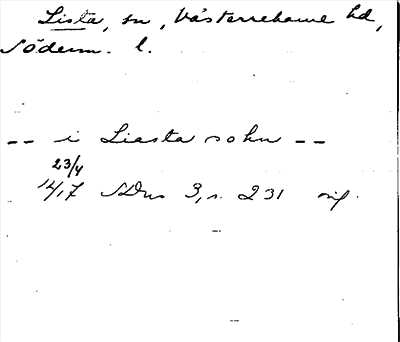 Lista, sn, Västerrekarne hd,
Söderm. l.
-- i Liasta sokn --
23/4
1417 SDns 3, s. 231 orig.